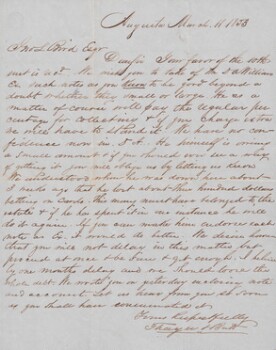 Augusta March 11 1853
Bird Esqr
Dear Sir Your favor of the 10th
inst is rec'd. We wish you to take of the
Co. such notes as you know to be good beyond a
doubt whether they small or large He as a
matter of course, will pay the regular per
centage for collecting & if you charge extra
we will have to stand it. We have no con
fidence now in He himself is owing
a small amount
betting it and all others as of betting on them
We understood when he was down here about
weeks ago that he lost about five hundred dollars
betting on Cards. This money must have belonged to the
estate & if he has spent it in one instance he will
do it again. If you can make him endorse each
note as Co. it would be better. We desire how
ever that you will not delay in this matter but
proceed at once & be sure & get enough. I
by one months delay and we should loose the
We wrote you on yesterday enclosing note
and account. Let us hear from you as soon
as you shall have consummated it.
Yours Respectfully